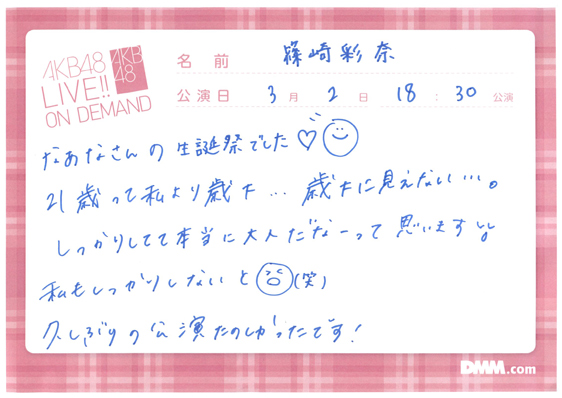 AKB48
LIVE!!
ON DEMAND
AKB
48
名前 篠崎彩奈
公演日 3月2日 18:30公演
なぁなさんの生誕祭でした♡
21歳って私より歳下…歳下に見えない…。
しっかりしてて本当に大人だなーって思います
私もしっかりしないと(笑)
久しぶりの公演たのしかったです!
DMM.com